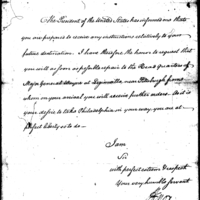 The President of the United States has informed me that
you are prepared to receive any instructions relatively to your
future destination. I have therefore the honor to request that
you will as soon as possible repair to the Head Quarters of
Major General Wayne at Legionville, near Pittsburgh from
whom on your arrival you will receive further orders. As it is
your desire to take Philadelphia in your way, you are at
perfect liberty so to do.
I am
Sir
with perfect esteem & respect
Your very humble servant